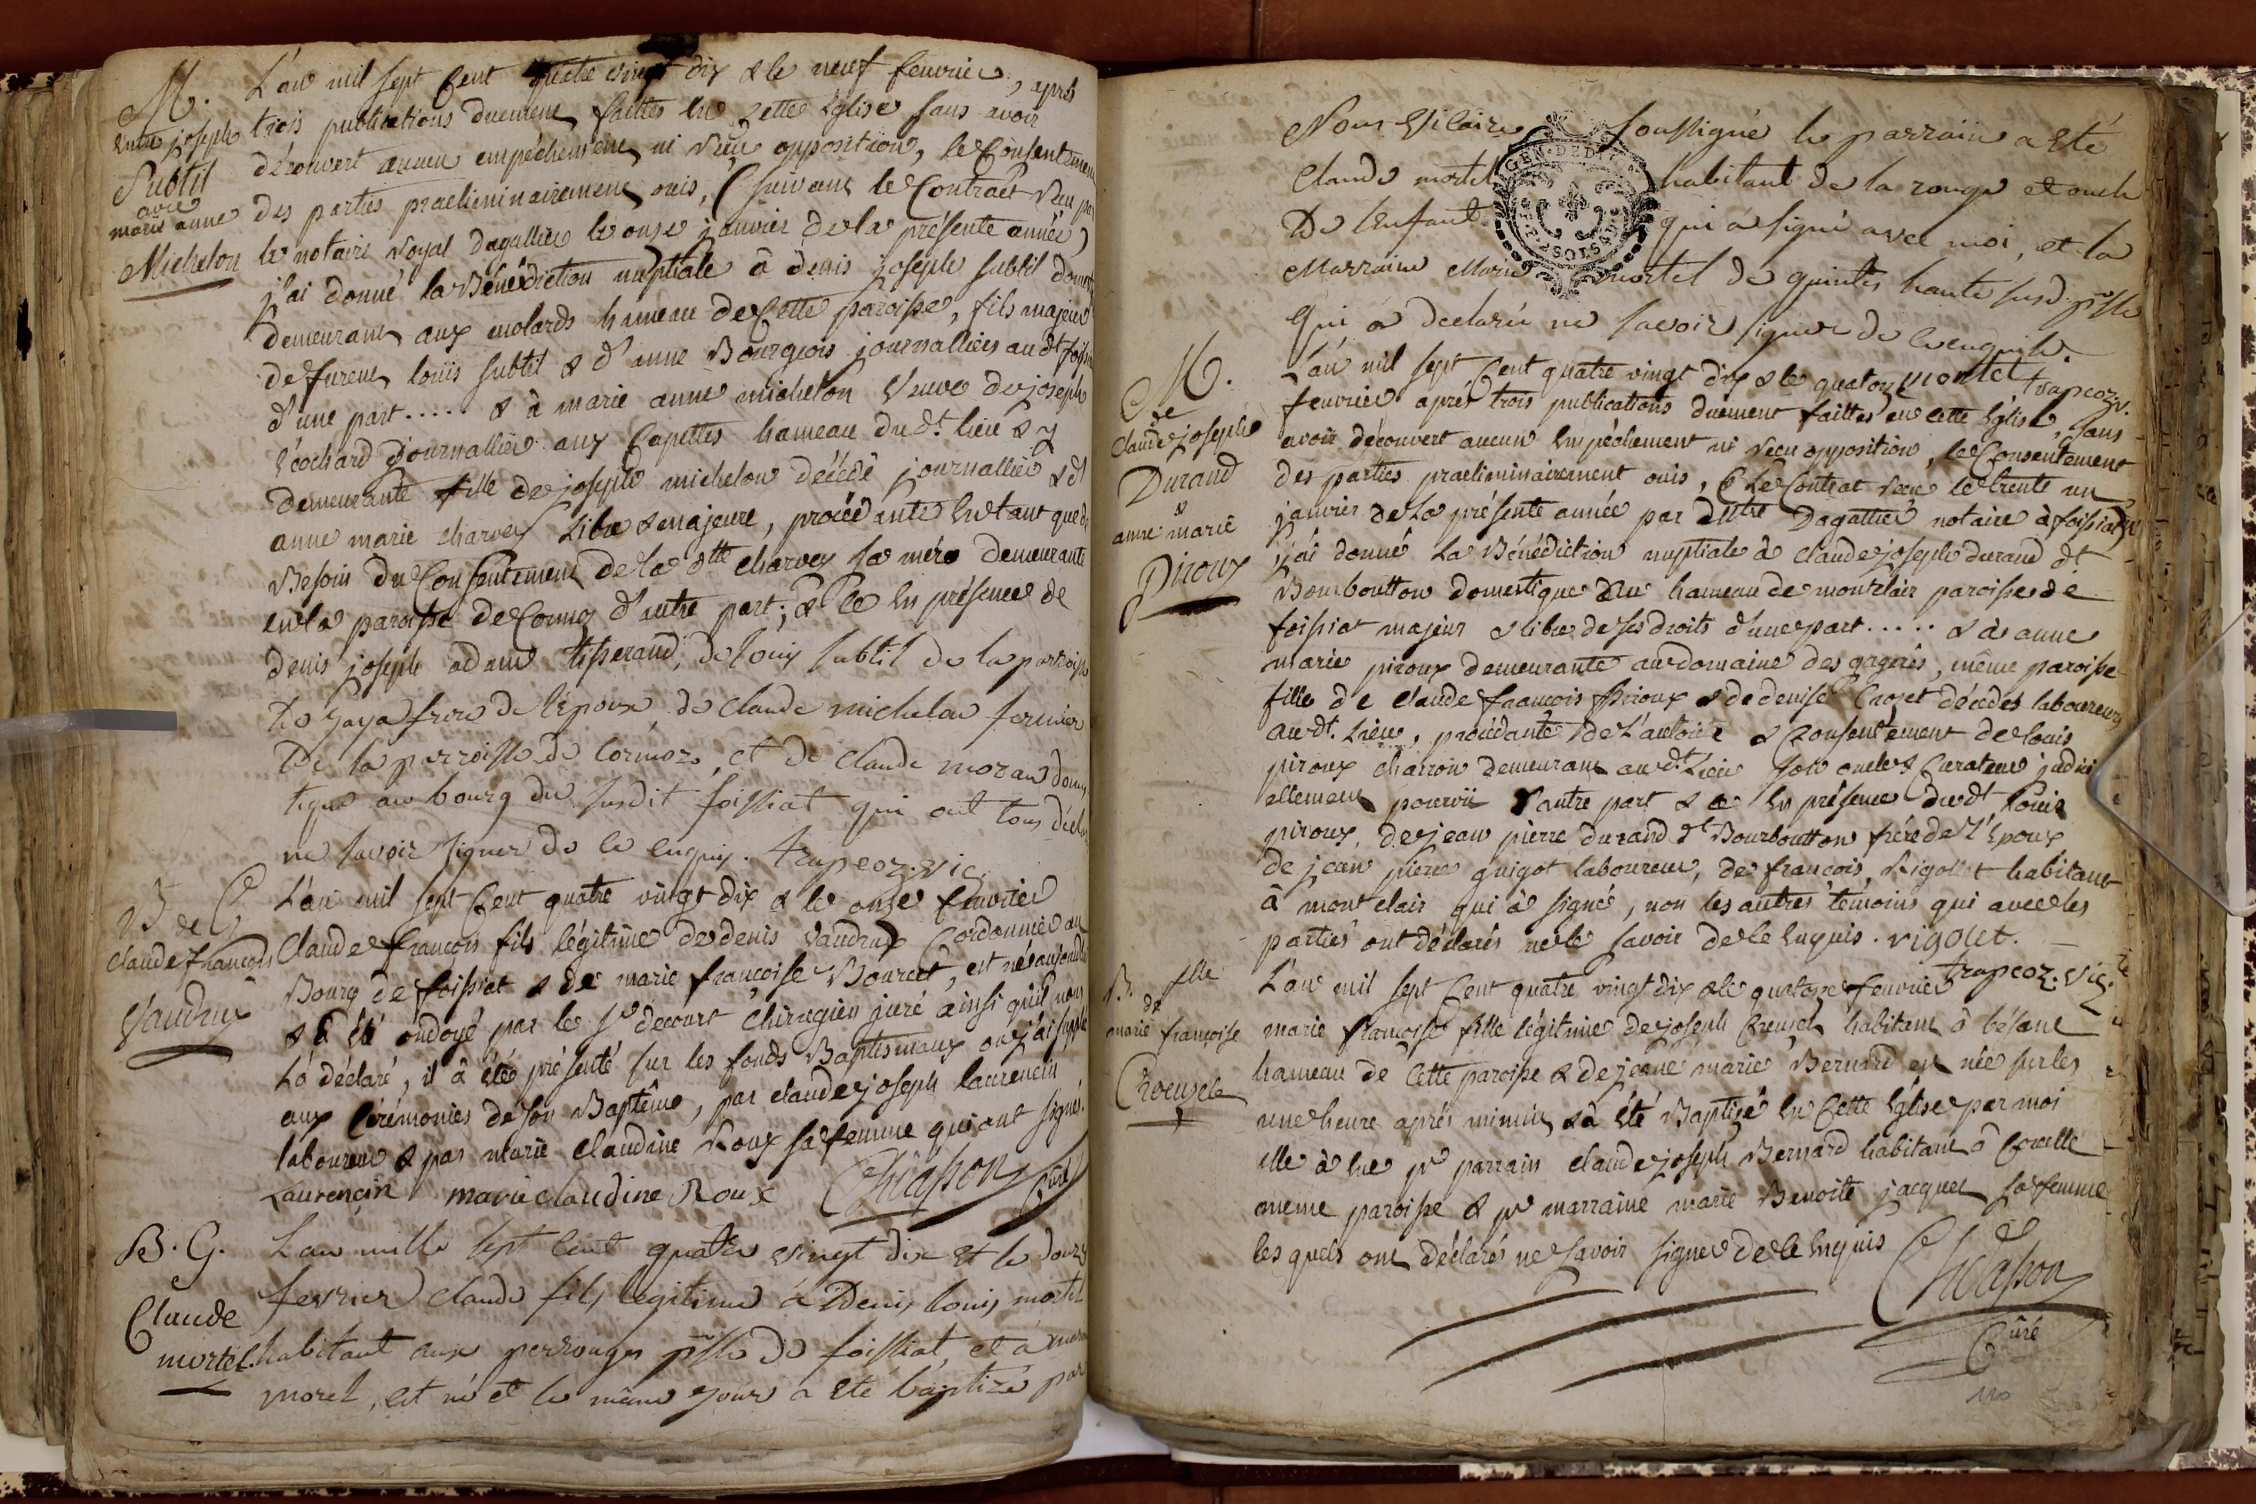 M.
entre joseph
Subtil
avec
marie anne
Michelon
L'an mil sept Cent quatre vingt dix & le neuf fevrier, après
trois publications duement faittes en cette Eglise sans avoir
découvert aucun empéchement ni reçu opposition, le Consentement
des parties praeliminairement ouis, (suivant le Contract reçu par
le notaire royal Dagallier le onze janvier de la présente année)
j'ai donné la Bénédiction nuptiale à denis joseph subtil
demeurant aux molards hameau de Cette paroisse, fils majeur
de furent loüis subtil & d'anne Bourgeois journalliers au dt foissiat
d'une part..... & à marie anne michelon veuve de joseph
cochard journallier aux Capettes hameau du dt. lieu & y
demeurante fille de joseph michelon décédé journallier & dt
anne marie charvey Libre & majeure, procédante en tant que de
Besoin du Consentement de la dtte charvey sa mére demeurante
en la paroisse de Cormoz d'autre part; & ce en présence de
denis joseph adam tisserand, de louis subtil de la parroisse
de jaya frere de l'epoux, de claude michelon fermier
de la parroisse de Cormoz, et de claude morand domes
tique au bourg du susdit foissiat qui ont tous déclaré
ne savoir signer de ce enquis. trapcoz. vic.
B de G
claude françois
Vaudrux
L'an mil sept Cent quatre vingt dix & le onze fevrier
Claude françois fils légitime de denis vaudrux Cordonnier au
Bourg de foissiat & de marie françoise Bourcet, est né aujourd'hui
& a été ondoyé par le sr decourt chirurgien juré ainsi qu'il nous
l'a déclaré, il â été présenté sur les fonds Baptismaux ou j'ai supplée
aux cérémonies de son Baptême, par claude joseph laurencin
laboureur & par marie claudine Roux sa femme qui ont signés.
Laurençin marie claudine Roux Chicasson Curé
B. G.
Claude
mortel
L'an mille sept cent quatre vingt dix et le douze
fevrier claude fils legitime à Denis louis mortel
habitant aux perrouges psse de foissiat et à
morel, est né et le même jour a été baptizé par
Nous Vicaire soussigné le parrain a été
Claude mortel habitant de la rouge et oncle
De l'enfant qui a signé avec moi, et la
Marraine Marie mortel de quintes haute susd. psse
Qui a declaré ne savoir signer de ce enquise.
mortel trapcoz v.
GEN. DEDIT
M.
de
Claude joseph
Durand
&
anne marie
Piroux
L'an mil sept Cent quatre vingt dix & le quatorze
fevrier après trois publications duëment faittes en cette Eglise, sans
avoir découvert aucun empéchement ni reçu opposition, le Consentement
des parties praeliminairement ouis, & Le Contrat reçu le trente un
janvier de La présente année par Dagallier notaire à foissiat
j'ai donné La Bénédiction nuptiale à claude joseph durand dt.
Bourboutton domestique au hameau de montclair paroisse de
foissiat majeur & libre de ses droits d'une part..... & à anne
marie piroux demeurante au domaine des gageres, même paroisse
fille de claude françois piroux & de denise Crozet décédés laboureurs
au dt. Lieu, procédante de L'autoité & Consentement de louis
piroux charron demeurant au dt. Lieu son oncle & Curateur judici
ellement pourvû d'autre part & ce en présence du dt louis
piroux, de jean pierre durand dt Bourboutton frére de L'Epoux
de jean pierre guigot laboureur, de françois Rigollet habitant
à mont clair qui à signé, non les autres témoins qui avec les
parties ont déclarés ne le savoir de ce Enquis. rigolet.
trapcoz. vic.
B. flle
de
marie françoise
Creuzet
L'an mil sept Cent quatre vingt dix & le quatorze fevrier
marie françoise fille légitime de joseph Creuzet habitant à bésane
hameau de Cette paroisse & de jeanne marie Bernard est née sur les
une heure après minuit & à été Baptizé en Cette Eglise par moi
elle à eue pr parrain claude joseph Bernard habitant à
meme paroisse & pr marraine marie Benoite jacquet sa femme
les quels ont déclarés ne savoir signer de ce Enquis
Chicasson
Curé